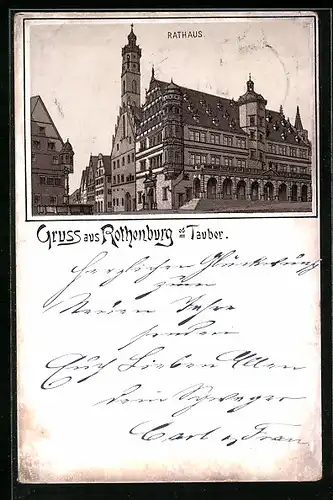 RATHAUS.
Gruss aus Rothenburg o/Tauber.
Herzlichen Glückwunsch
zum
Neuen Jahre
senden
Euch Lieben Allen
Dein Schwager
Carl u. Frau